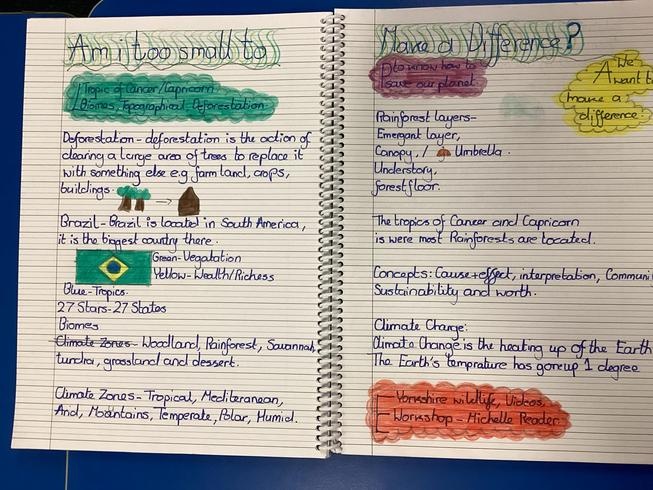 Am i too small to
Tropic of Cancer/Capricorn
Biomes, Topographical, Deforestation
Deforestation - deforestation is the action of
clearing a large area of trees to replace it
with something else e.g farm land, crops,
buildings.
Brazil - Brazil is located in South America,
it is the biggest country there.
Green - Vegatation
Yellow - Wealth/Richess
Blue - Tropics.
27 Stars - 27 States
Biomes
Climate Zones - Woodland, Rainforest, Savannah,
tundra, grassland and dessert.
Climate Zones - Tropical, Mediteranean,
Arid, Mountains, Temperate, Polar, Humid.
Make a Difference?
P to know how to
save our planet
We
A want to
make a
difference
Rainforest layers-
Emergant layer,
Canopy, / Umbrella.
Understory,
forest floor.
The tropics of Cancer and Capricorn
is were most Rainforests are located.
Concepts: Cause + effect, interpretation, Communi
Sustainability and worth.
Climate Change:
Climate Change is the heating up of the Earth
The Earth's temprature has gone up 1 degree
E Yorkshire wildlife, Videos,
Workshop - Michelle Reader.